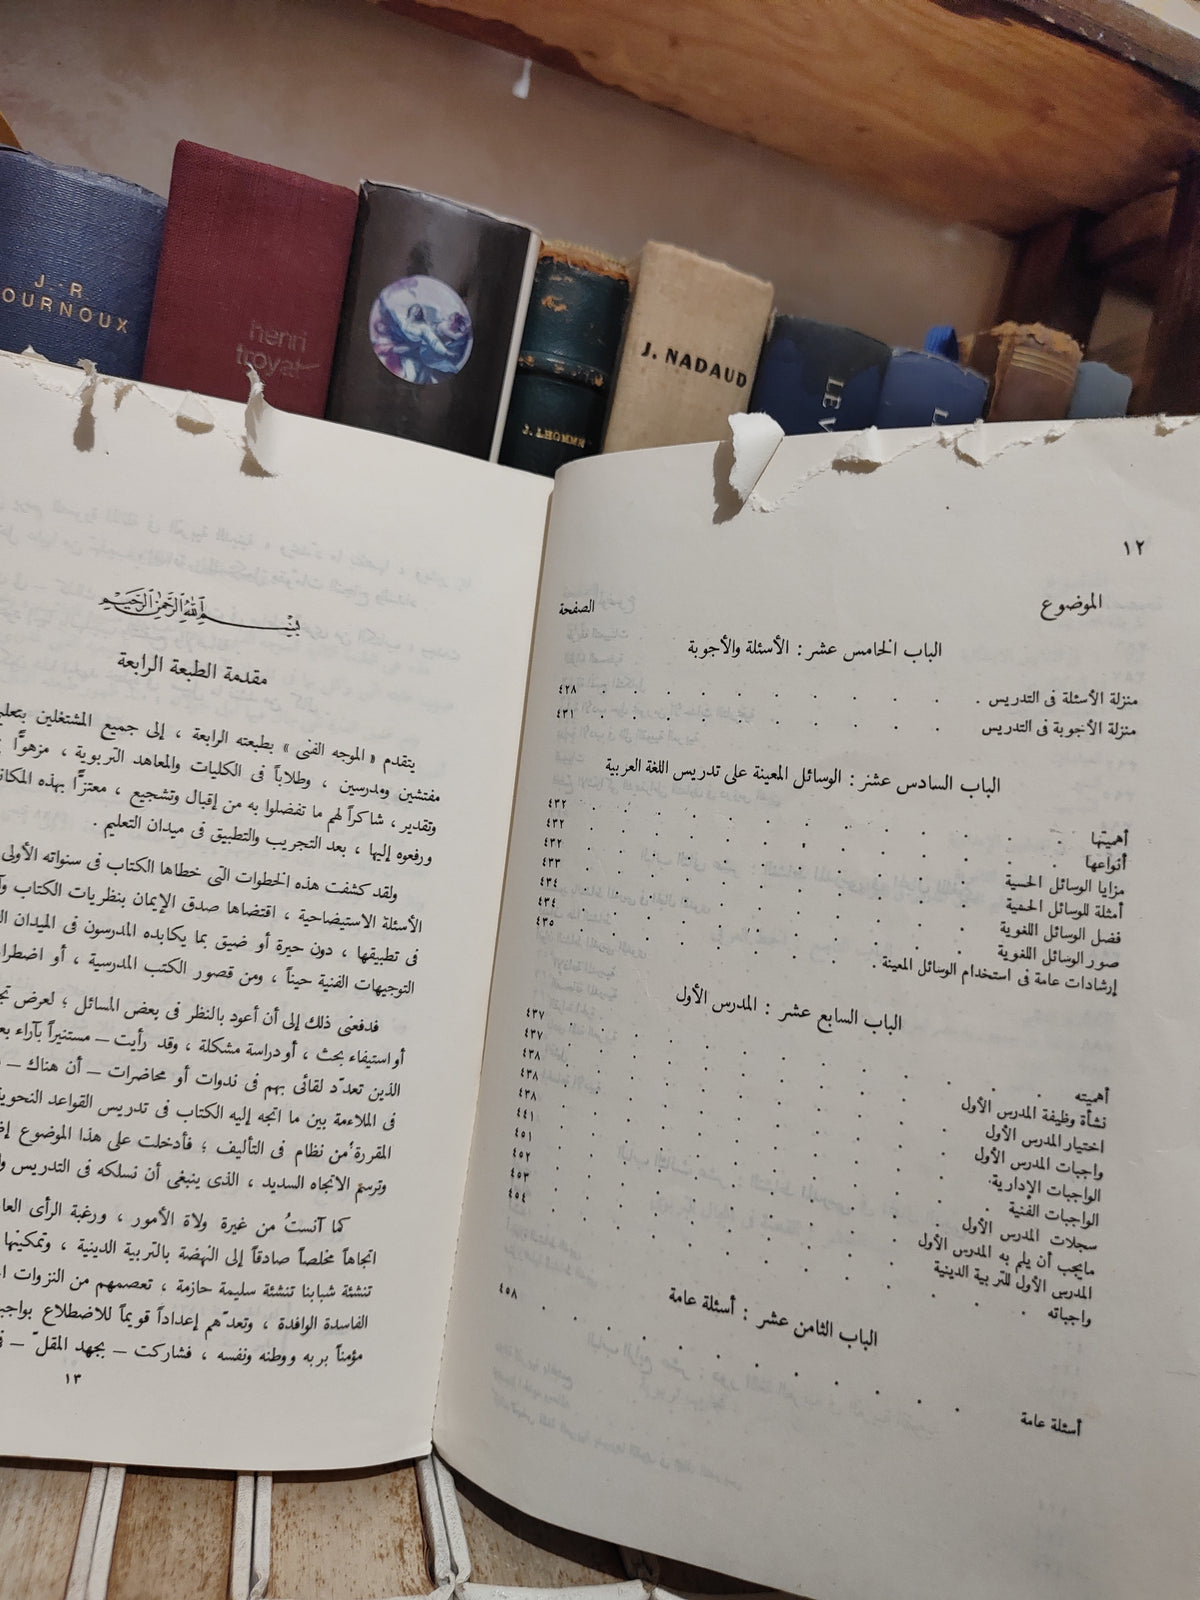 J-R
OURNOUX
henri
troyat
J. THOMME
J. NADAUD
LE V
L
١٢
الموضوع
الصفحة
الباب الخامس عشر : الأسئلة والأجوبة
منزلة الأسئلة فى التدريس . . . . . . . . ٤٢٨
منزلة الأجوبة فى التدريس . . . . . . . . ٤٣١
الباب السادس عشر : الوسائل المعينة على تدريس اللغة العربية
أهميتها . . . . . . . . ٤٣٢
أنواعها . . . . . . . . ٤٣٢
مزايا الوسائل الحسية . . . . . . . . ٤٣٢
أمثلة للوسائل الحسية . . . . . . . . ٤٣٣
فضل الوسائل اللغوية . . . . . . . . ٤٣٤
صور الوسائل اللغوية . . . . . . . . ٤٣٤
إرشادات عامة فى استخدام الوسائل المعينة . . . . . . . . ٤٣٥
الباب السابع عشر : المدرس الأول
أهميته . . . . . . . . ٤٣٧
نشأة وظيفة المدرس الأول . . . . . . . . ٤٣٧
اختيار المدرس الأول . . . . . . . . ٤٣٨
واجبات المدرس الأول . . . . . . . . ٤٣٨
الواجبات الإدارية . . . . . . . . ٤٣٨
الواجبات الفنية . . . . . . . . ٤٤١
سجلات المدرس الأول . . . . . . . . ٤٥١
مايجب أن يلم به المدرس الأول . . . . . . . . ٤٥٢
المدرس الأول للتربية الدينية . . . . . . . . ٤٥٣
واجباته . . . . . . . . ٤٥٤
الباب الثامن عشر : أسئلة عامة
أسئلة عامة . . . . . . . . ٤٥٨
بسم الله الرحمن الرحيم
مقدمة الطبعة الرابعة
يتقدم « الموجه الفنى » بطبعته الرابعة ، إلى جميع المشتغلين بتعليم
مفتشين ومدرسين ، وطلاباً فى الكليات والمعاهد التربوية ، مزهوًّا
وتقدير ، شاكراً لهم ما تفضلوا به من إقبال وتشجيع ، معتزًّا بهذه المكانة
ورفعوه إليها ، بعد التجريب والتطبيق فى ميدان التعليم .
ولقد كشفت هذه الخطوات التى خطاها الكتاب فى سنواته الأولى
الأسئلة الاستيضاحية ، اقتضاها صدق الإيمان بنظريات الكتاب
فى تطبيقها ، دون حيرة أو ضيق بما يكابده المدرسون فى الميدان
التوجيهات الفنية حيناً ، ومن قصور الكتب المدرسية ، أو اضطراب
فدفعنى ذلك إلى أن أعود بالنظر فى بعض المسائل ؛ لعرض
أو استيفاء بحث ، أو دراسة مشكلة ، وقد رأيت — مستنيراً بآراء
الذين تعدّد لقائى بهم فى ندوات أو محاضرات — أن هناك —
فى الملاءمة بين ما اتجه إليه الكتاب فى تدريس القواعد النحوية
المقررة من نظام فى التأليف ؛ فأدخلت على هذا الموضوع
وترسم الاتجاه السديد ، الذى ينبغى أن نسلكه فى التدريس
كما آنستُ من غيرة ولاة الأمور ، ورغبة الرأى العام
اتجاهاً مخلصاً صادقاً إلى النهضة بالتربية الدينية ، وتمكينها
تنشئة شبابنا تنشئة سليمة حازمة ، تعصمهم من النزوات
الفاسدة الوافدة ، وتعدّهم إعداداً قويماً للاضطلاع
مؤمناً بربه ووطنه ونفسه ، فشاركت — بجهد المقلّ —
١٣